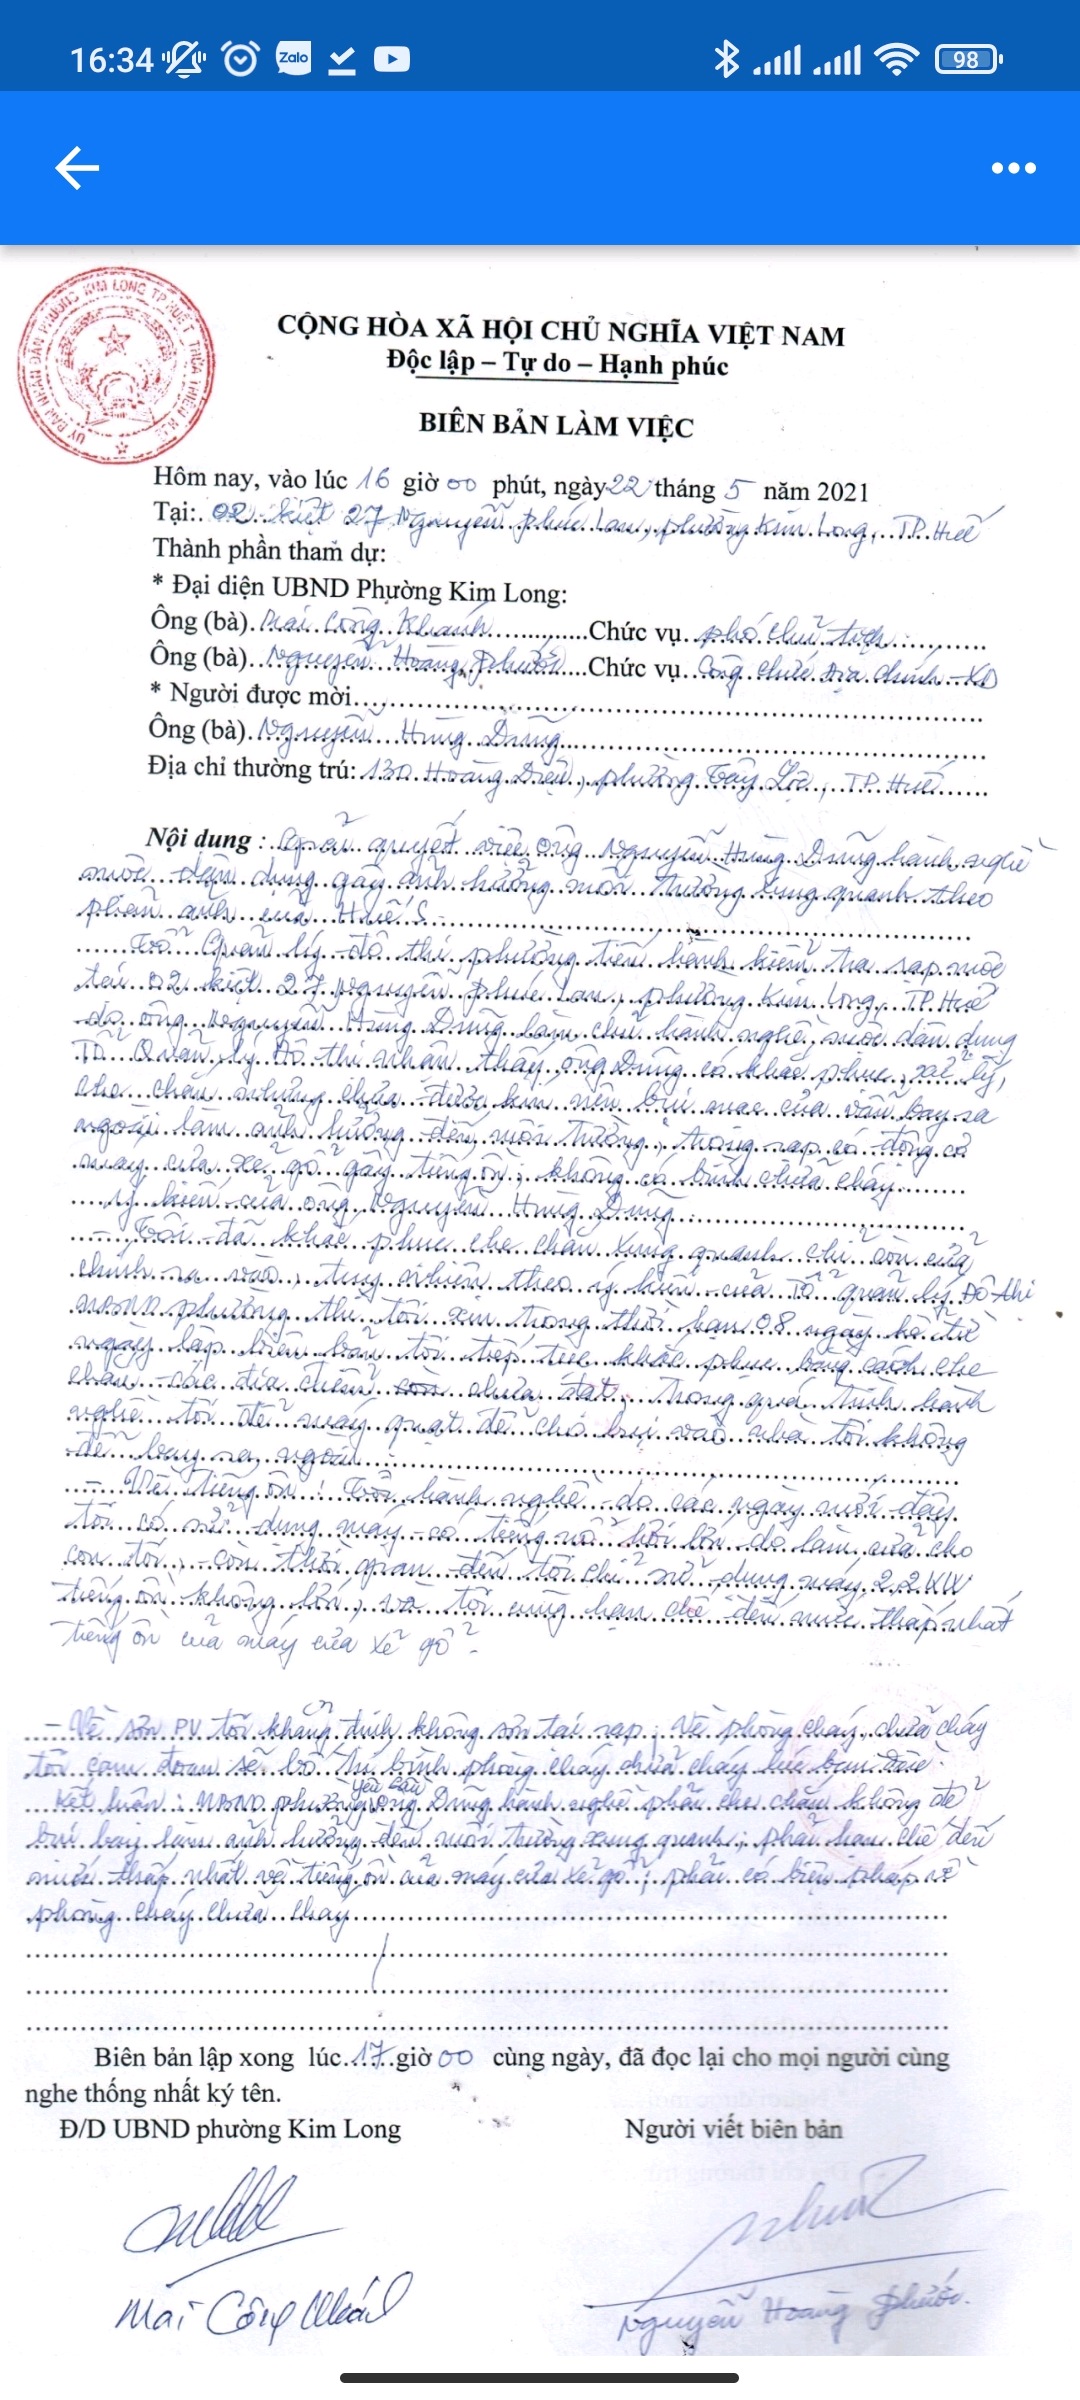 16:34
Zalo
98
ỦY BAN NHÂN DÂN PHƯỜNG KIM LONG TP HUẾ T. THỪA THIÊN HUẾ
CỘNG HÒA XÃ HỘI CHỦ NGHĨA VIỆT NAM
Độc lập – Tự do – Hạnh phúc
BIÊN BẢN LÀM VIỆC
Hôm nay, vào lúc 16 giờ 00 phút, ngày 22 tháng 5 năm 2021
Tại: 02 kiệt 27 Nguyễn Phúc Lan, phường Kim Long, TP. Huế
Thành phần tham dự:
* Đại diện UBND Phường Kim Long:
Ông (bà) Mai Công Khánh Chức vụ phó chủ tịch
Ông (bà) Nguyễn Hoàng Phước Chức vụ Công chức Địa chính - XD
* Người được mời
Ông (bà) Nguyễn Hùng Dũng
Địa chỉ thường trú: 130 Hoàng Diệu, phường Tây Lộc, TP. Huế
Nội dung : Giải quyết việc ông Nguyễn Hùng Dũng hành nghề
mộc dân dụng gây ảnh hưởng môi trường xung quanh theo
phản ánh của Huế S.
Tổ Quản lý đô thị phường tiến hành kiểm tra rạp mộc
tại 02 kiệt 27 Nguyễn Phúc Lan, phường Kim Long, TP Huế
do ông Nguyễn Hùng Dũng làm chủ hành nghề mộc dân dụng
Tổ Quản lý Đô thị nhận thấy ông Dũng có khắc phục, xử lý,
che chắn nhưng chưa được kín nên bụi mạc cưa vẫn bay ra
ngoài làm ảnh hưởng đến môi trường; trong rạp có động cơ
máy cưa xẻ gỗ gây tiếng ồn; không có bình chữa cháy
Ý kiến của ông Nguyễn Hùng Dũng
- Tôi đã khắc phục che chắn xung quanh chỉ còn cửa
chính ra vào, tuy nhiên theo ý kiến của Tổ quản lý Đô thị
UBND phường thì tôi xin trong thời hạn 08 ngày kể từ
ngày lập biên bản tôi tiếp tục khắc phục bằng cách che
chắn các địa điểm còn chưa đạt, trong quá trình hành
nghề tôi để máy quạt để cho bụi vào nhà tôi không
để bay ra ngoài
- Về tiếng ồn: Tôi hành nghề do các ngày mới đây
tôi có sử dụng máy có tiếng nổ hơi lớn do làm cửa cho
con tôi, còn thời gian đến tôi chỉ sử dụng máy 2,2 KW
tiếng ồn không lớn, và tôi cũng hạn chế đến mức thấp nhất
tiếng ồn của máy cưa xẻ gỗ.
- Về sơn PV tôi khẳng định không sơn tại rạp; Về phòng cháy, chữa cháy
tôi cam đoan sẽ bố trí bình phòng cháy chữa cháy lúc ban đầu.
Kết luận: UBND phường yêu cầu ông Dũng hành nghề phải che chắn không để
bụi bay làm ảnh hưởng đến môi trường xung quanh; phải hạn chế đến
mức thấp nhất về tiếng ồn của máy cưa xẻ gỗ; phải có biện pháp về
phòng cháy chữa cháy
Biên bản lập xong lúc 17 giờ 00 cùng ngày, đã đọc lại cho mọi người cùng
nghe thống nhất ký tên.
Đ/D UBND phường Kim Long Người viết biên bản
Mai Công Khánh Nguyễn Hoàng Phước